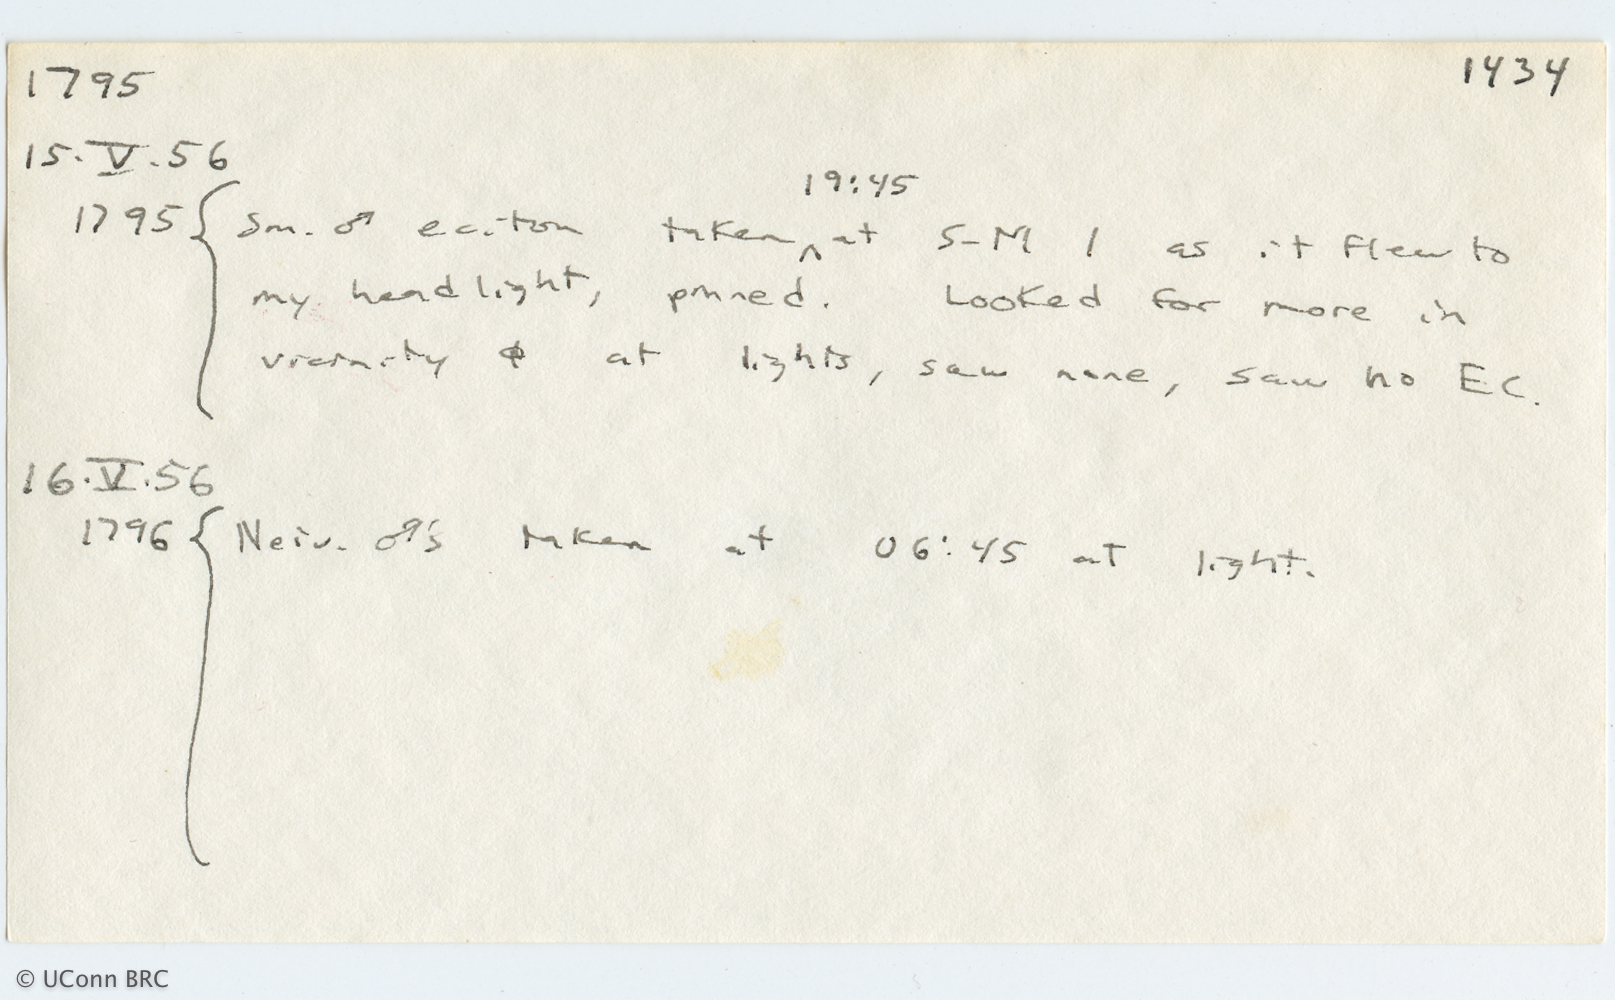 1795 1434
15.V.56
19:45
1795 { Sm. ♂ eciton taken ^ at S-M 1 as it flew to
my headlight, pinned. Looked for more in
vicinity & at lights, saw none, saw no E.C.
16.V.56
1796 { Neiv. ♂'s taken at 06:45 at light.
© UConn BRC